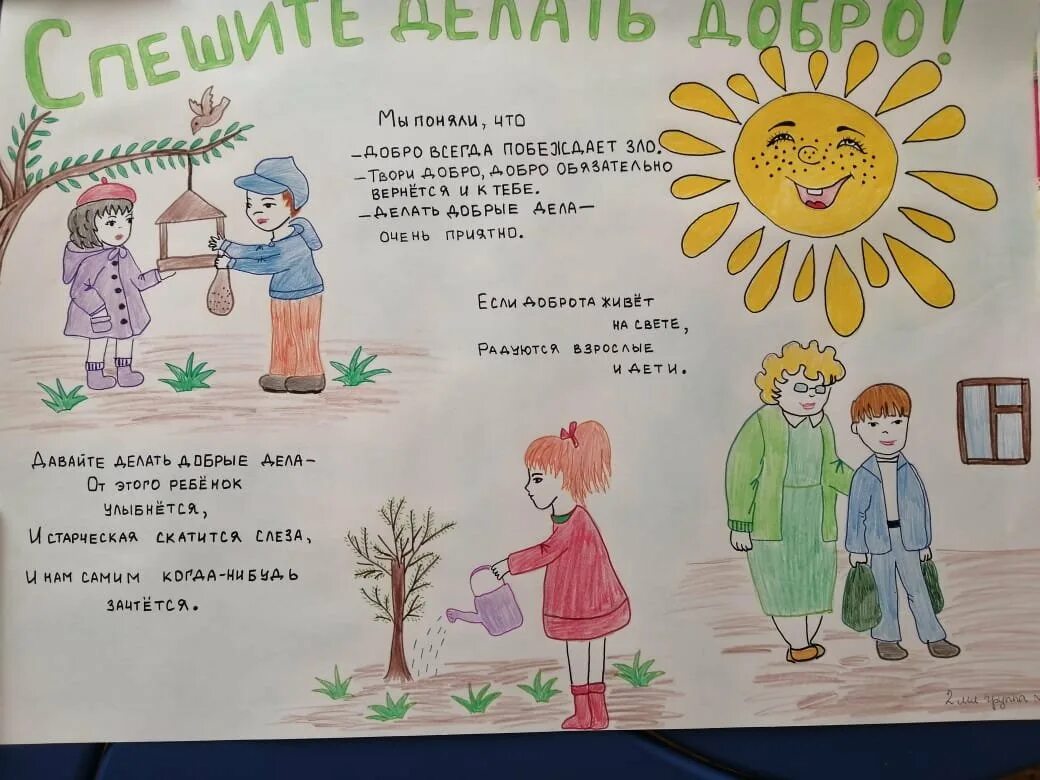 Спешите делать добро!
Мы поняли, что
– добро всегда побеждает зло.
– Твори добро, добро обязательно
вернётся и к тебе.
– Делать добрые дела –
очень приятно.
Если доброта живёт
на свете,
Радуются взрослые
и дети.
Давайте делать добрые дела –
От этого ребёнок
улыбнётся,
И старческая скатится слеза,
И нам самим когда-нибудь
зачтётся.
2 мл группа